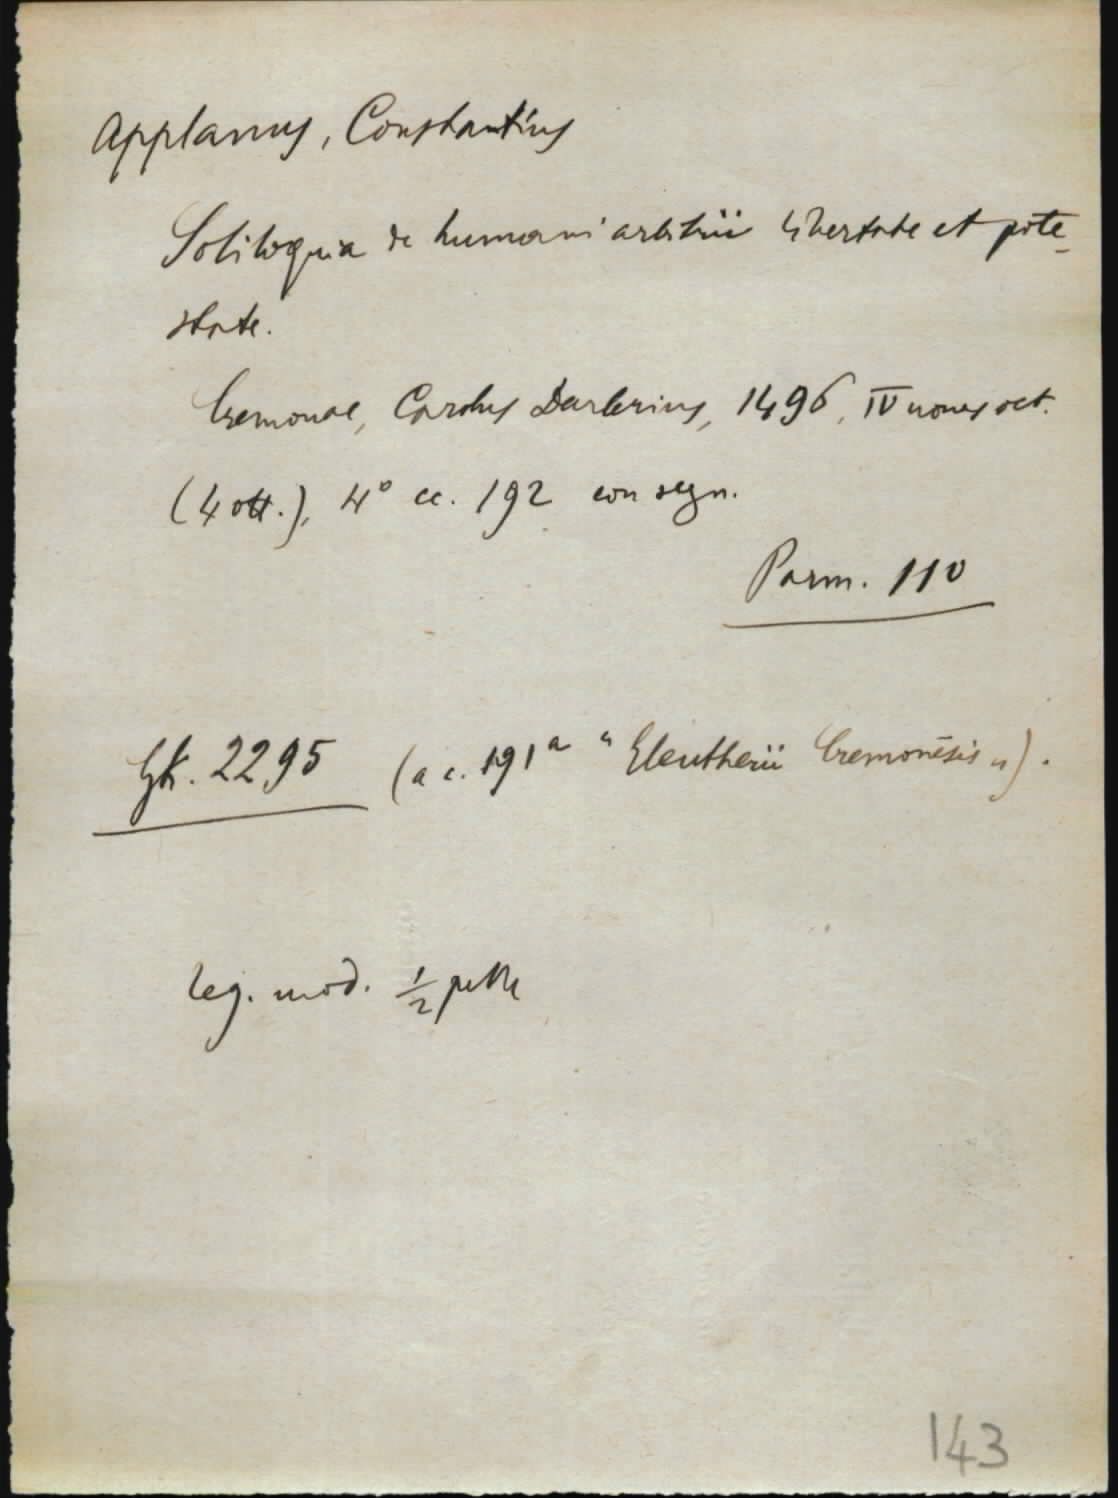 Applanus, Constantius
Soliloquia de humani arbitrii libertate et pote-
state.
Cremonae, Carolus Darlerius, 1496, IV nonas oct.
(4 ott.), 4° cc. 192 con segn.
Parm. 110
GK. 2295 (a c. 191ª "Eleutherii Cremonēsis").
leg. mod. ½ pelle
143